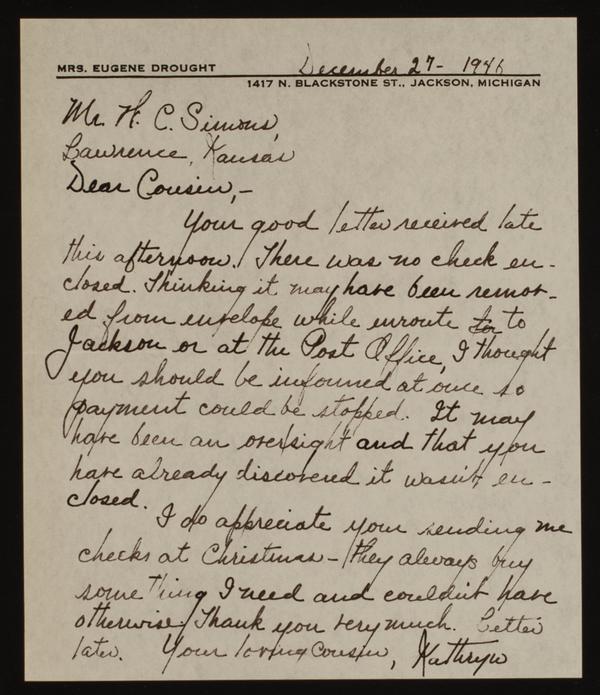 MRS. EUGENE DROUGHT
December 27- 1946
1417 N. BLACKSTONE ST., JACKSON, MICHIGAN
Mr. H. C. Simons,
Lawrence, Kansas
Dear Cousin,-
Your good letter received late
this afternoon. There was no check en-
closed. Thinking it may have been remov-
ed from envelope while enroute to
Jackson or at the Post Office, I thought
you should be informed at once so
payment could be stopped. It may
have been an oversight and that you
have already discovered it wasn't en-
closed.
I do appreciate your sending me
checks at Christmas - they always buy
something I need and couldn't have
otherwise. Thank you very much. Letter
later. Your loving cousin, Kathryn